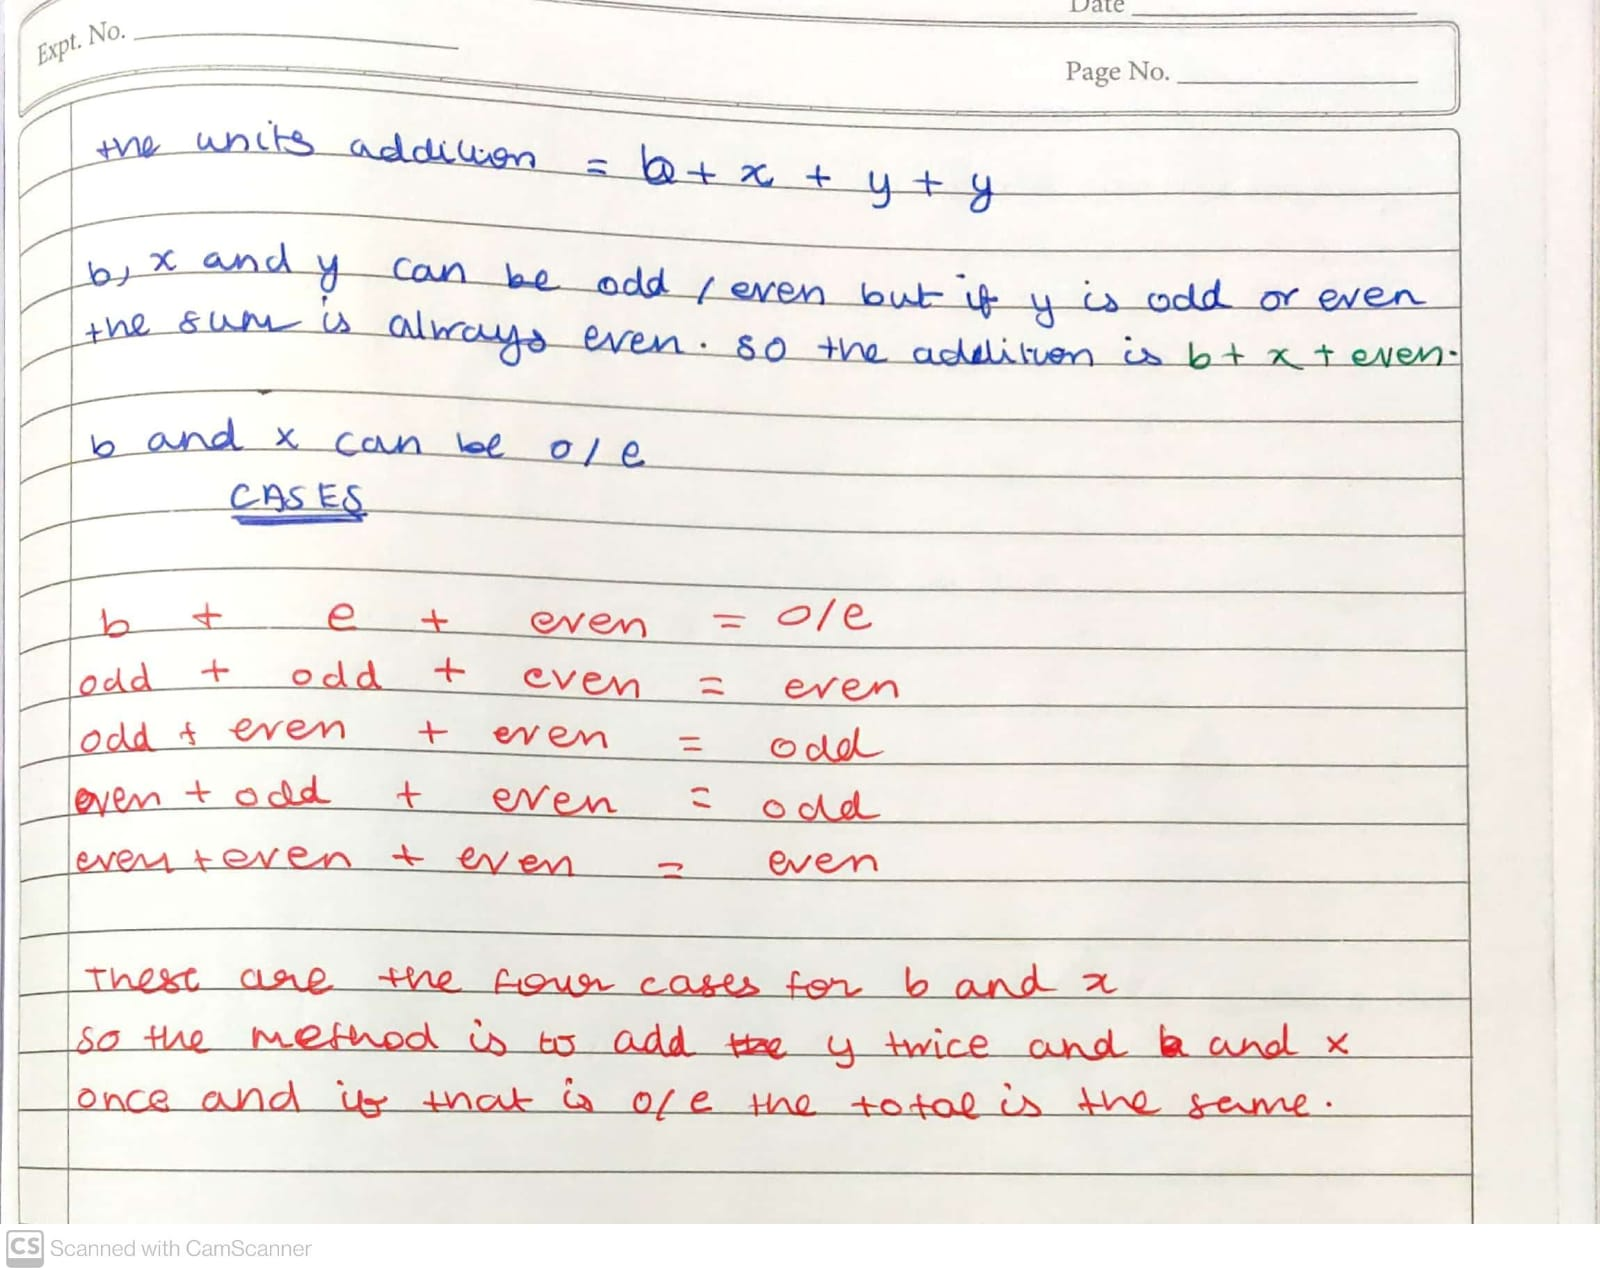 Date
Expt. No.
Page No.
the units addition = b + x + y + y
b, x and y can be odd / even but if y is odd or even
the sum is always even. so the addition is b + x + even.
b and x can be o/e
CASES
b + e + even = o/e
odd + odd + even = even
odd + even + even = odd
even + odd + even = odd
even + even + even = even
These are the four cases for b and x
so the method is to add the y twice and b and x
once and if that is o/e the total is the same.
CS Scanned with CamScanner